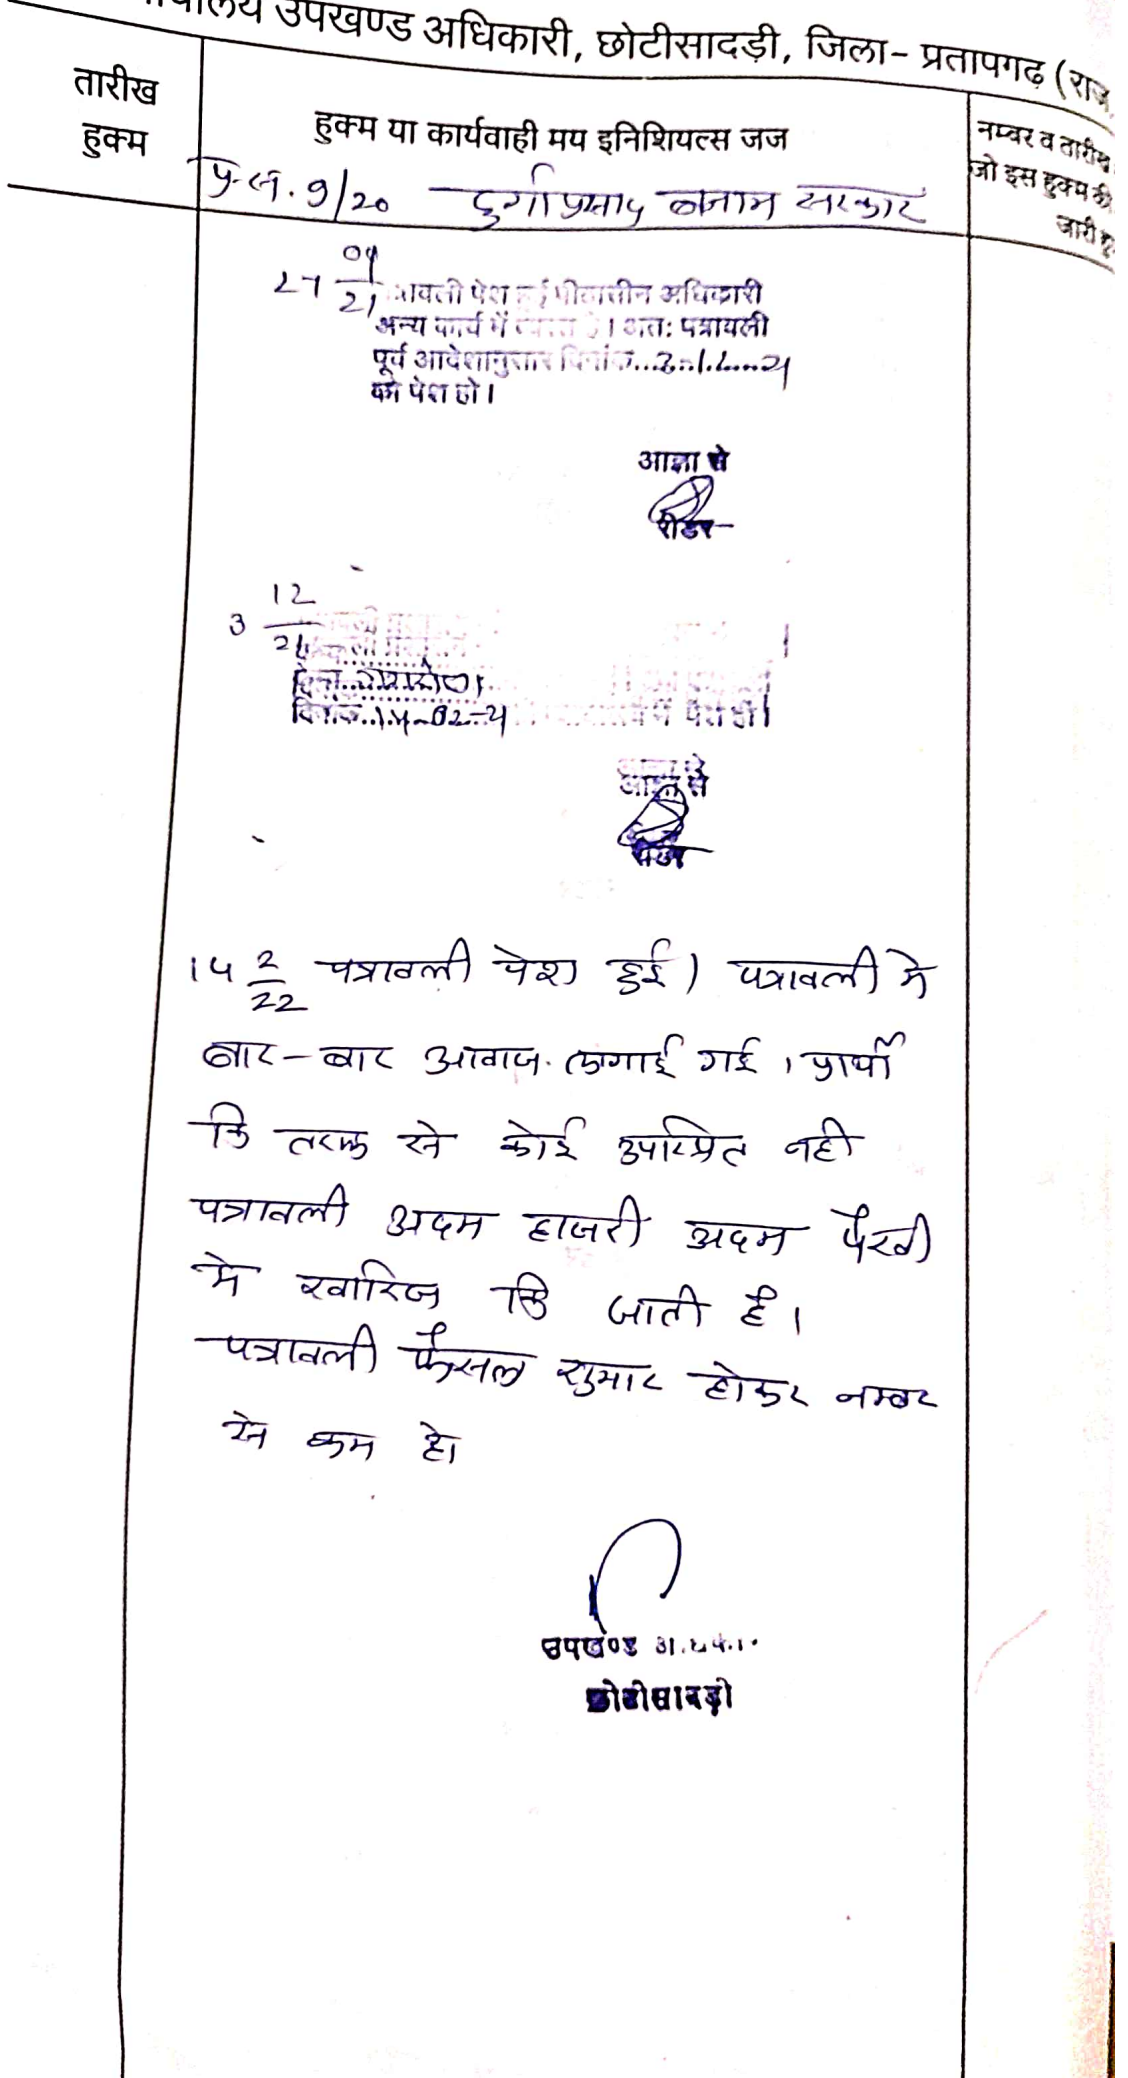 उपखण्ड अधिकारी, छोटीसादड़ी, जिला- प्रतापगढ़ (राज.
तारीख
हुक्म
हुक्म या कार्यवाही मय इनिशियल्स जज
नम्बर व तारीख
जो इस हुक्म की
जारी हु
प्र.सं. 9/20 दुर्गाप्रसाद बनाम सरकार
पेश हुई पीठासीन अधिकारी
अन्य कार्य में व्यस्त है। अतः पत्रावली
पूर्व आदेशानुसार दिनांक
को पेश हो।
आज्ञा से
रीडर
3 12/21
दिनांक..14-02-22 में पेश हो।
आज्ञा से
रीडर
14 2/22 पत्रावली पेश हुई। पत्रावली मे
बार-बार आवाज लगाई गई। प्रार्थी
कि तरफ से कोई उपस्थित नही
पत्रावली अदम हाजरी अदम पैरवी
मे खारिज कि जाती है।
पत्रावली फैसल शुमार होकर नम्बर
से कम हो।
उपखण्ड
छोटीसादड़ी